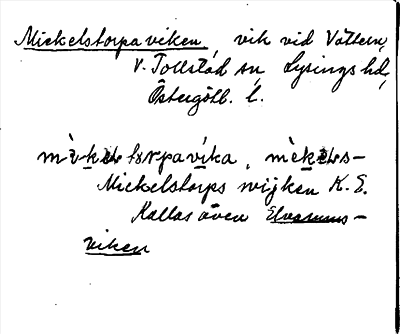 Mickelstorpaviken, vik vid Vättern,
V. Tollstad sn, Lysings hd,
Östergötl. l.
mickelstorpavika,
Mickelstorps wijken K. E.
Kallas även
viken